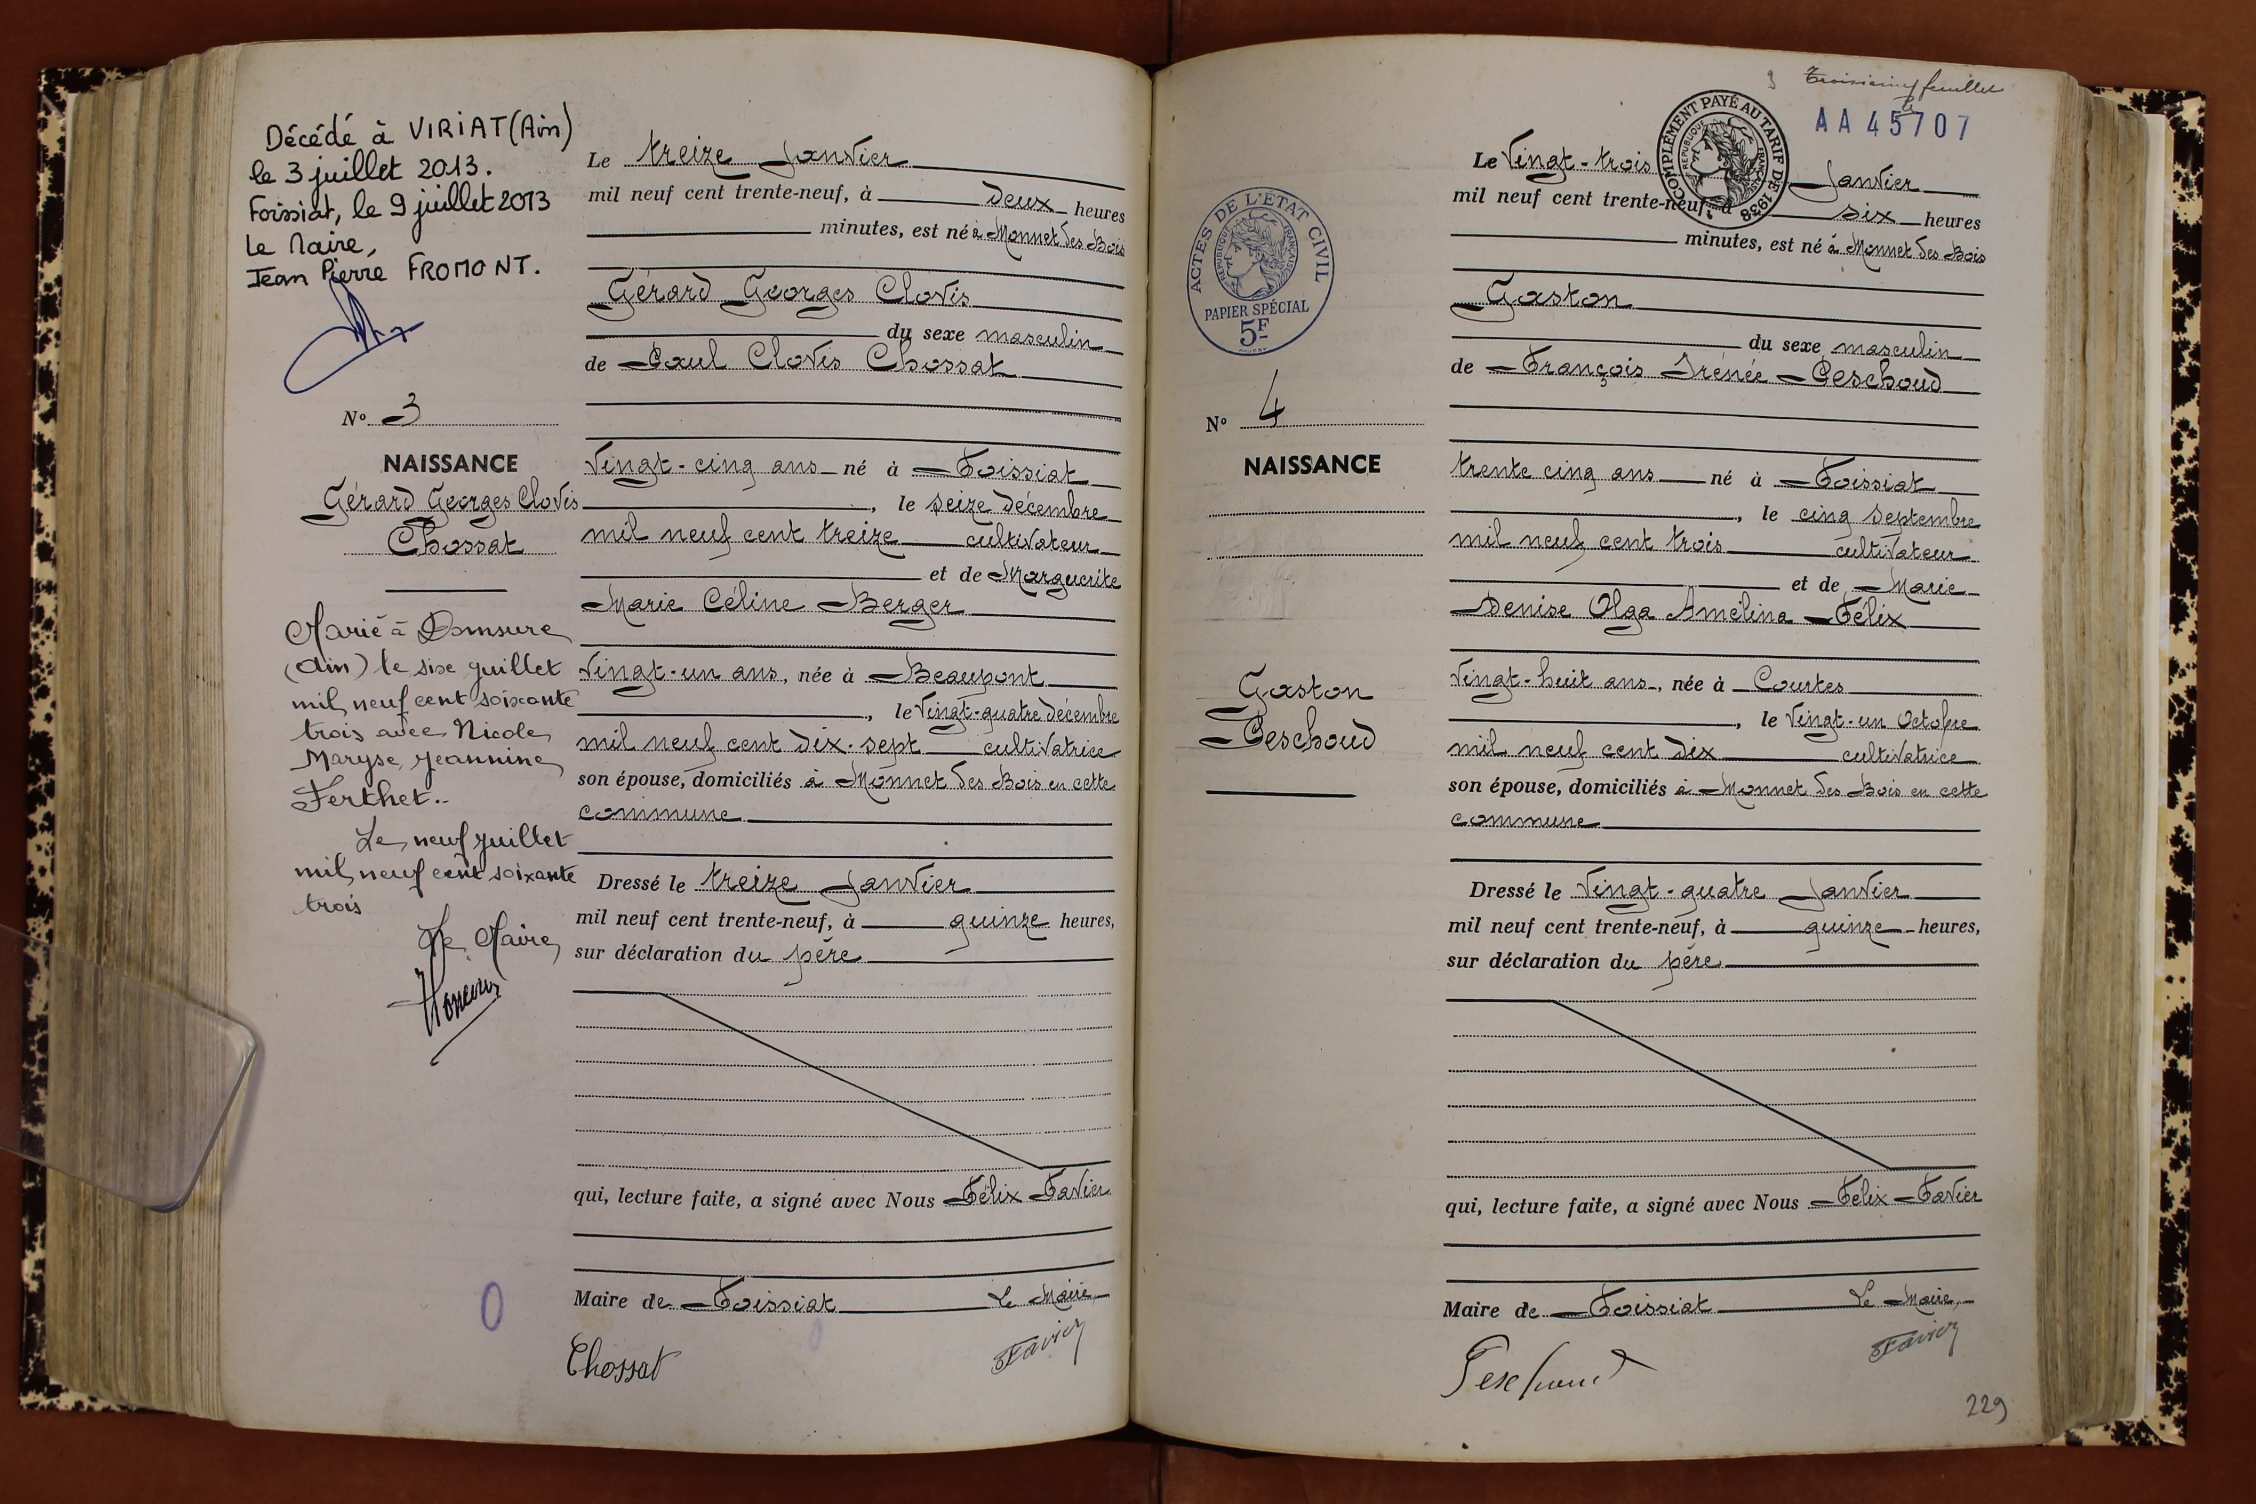 Décédé à VIRIAT (Ain)
le 3 juillet 2013.
Foissiat, le 9 juillet 2013
Le Maire,
Jean Pierre FROMONT.
N° 3
NAISSANCE
Gérard Georges Clovis
Chossat
Marié à Domsure
(Ain) le six juillet
mil neuf cent soixante
trois avec Nicole
Maryse Jeannine
Ferthet..
Le neuf juillet
mil neuf cent soixante
trois
Le Maire
Le treize Janvier
mil neuf cent trente-neuf, à deux heures
minutes, est né à Monnet des Bois
Gérard Georges Clovis
du sexe masculin
de Paul Clovis Chossat
Vingt-cinq ans né à Foissiat
, le seize décembre
mil neuf cent treize cultivateur
et de Marguerite
Marie Céline Berger
Vingt-un ans, née à Beaupont
, le Vingt-quatre décembre
mil neuf cent dix-sept cultivatrice
son épouse, domiciliés à Monnet des Bois en cette
commune
Dressé le treize Janvier
mil neuf cent trente-neuf, à quinze heures,
sur déclaration du père
qui, lecture faite, a signé avec Nous Félix Favier
Maire de Foissiat Le Maire,
Chossat Favier
3 Troisième feuillet
AA45707
COMPLÉMENT PAYÉ AU TARIF DE 1938
RÉPUBLIQUE FRANÇAISE
ACTES DE L'ÉTAT CIVIL
RÉPUBLIQUE FRANÇAISE
PAPIER SPÉCIAL
5F
N° 4
NAISSANCE
Gaston
Peschoud
Le Vingt-trois Janvier
mil neuf cent trente-neuf, à six heures
minutes, est né à Monnet des Bois
Gaston
du sexe masculin
de François Irénée Peschoud
trente cinq ans né à Foissiat
, le cinq septembre
mil neuf cent trois cultivateur
et de Marie
Denise Olga Amélina Félix
Vingt-huit ans, née à Courtes
, le Vingt-un Octobre
mil neuf cent dix cultivatrice
son épouse, domiciliés à Monnet des Bois en cette
commune
Dressé le Vingt-quatre Janvier
mil neuf cent trente-neuf, à quinze heures,
sur déclaration du père
qui, lecture faite, a signé avec Nous Félix Favier
Maire de Foissiat Le Maire,
Peschoud Favier
229